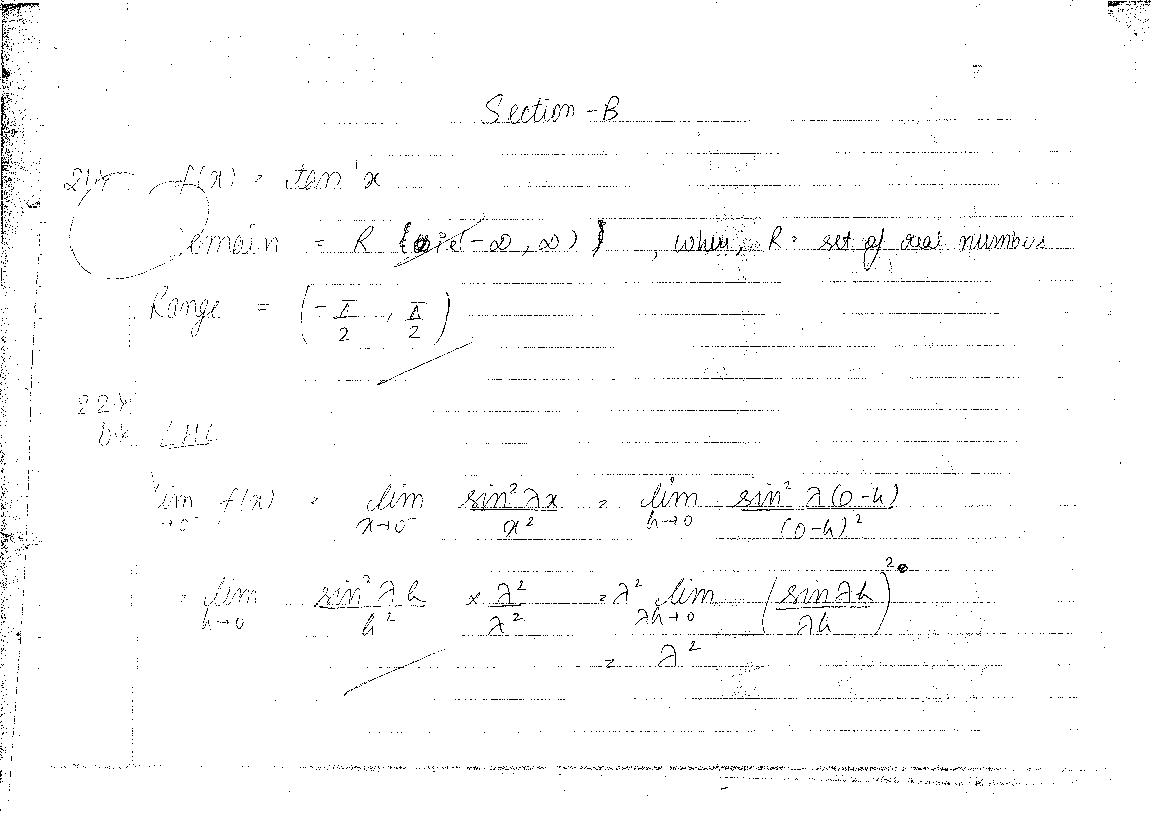 Section - B
21. f(x) = tan⁻¹x
Domain = R {i.e (-∞, ∞)} , where, R = set of real numbers
Range = (-π/2 , π/2)
22.
b. LHL
lim x→0⁻ f(x) = lim x→0⁻ sin²λx / x² = lim h→0 sin²λ(0-h) / (0-h)²
= lim h→0 sin²λh / h² × λ²/λ² = λ² lim λh→0 (sinλh / λh)²
= λ²